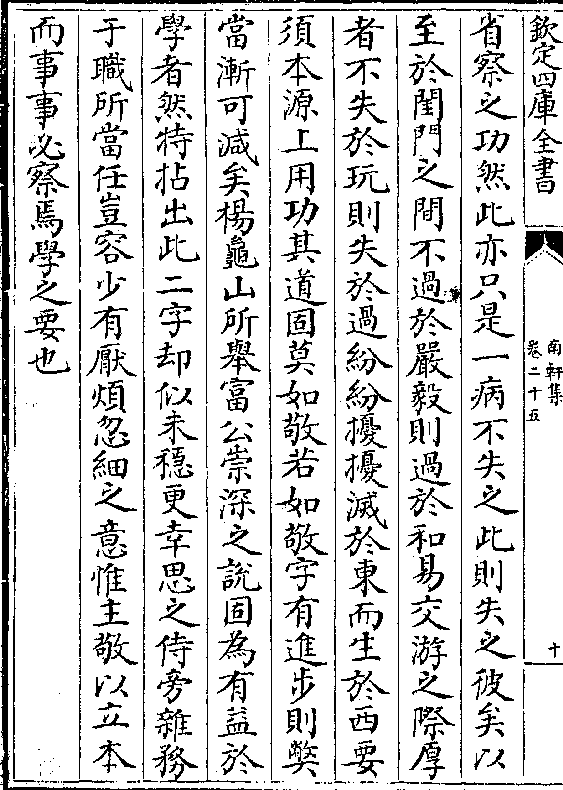 欽定四庫全書
南軒集
卷二十五
十
省察之功然此亦只是一病不失之此則失之彼矣以
至於閨門之間不過於嚴毅則過於和易交游之際厚
者不失於玩則失於過紛紛擾擾滅於東而生於西要
須本源上用功其道固莫如敬若如敬字有進步則弊
當漸可減矣楊龜山所舉富公崇深之說固為有益於
學者然特拈出此二字却似未穩更幸思之侍旁雜務
于職所當任豈容少有厭煩忽細之意惟主敬以立本
而事事必察焉學之要也